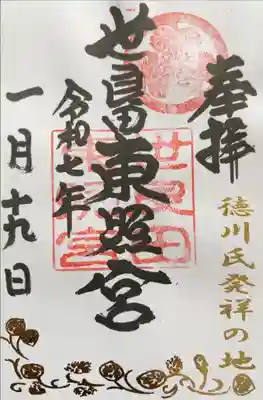 奉拝
徳川氏発祥の地
世良田東照宮
令和七年
一月十九日